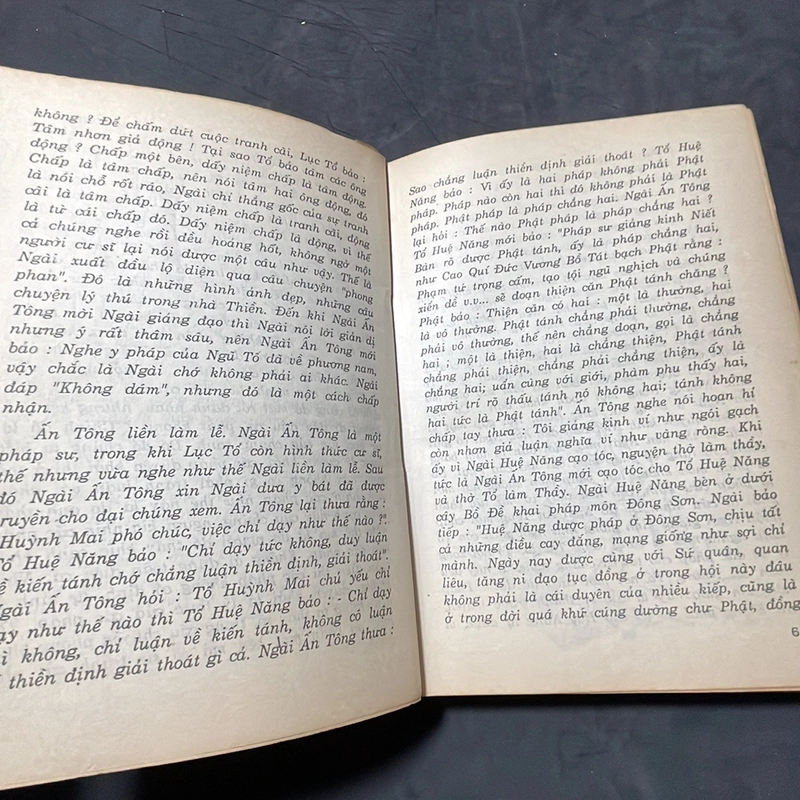 không ? Để chấm dứt cuộc tranh cãi, Lục Tổ bảo :
Tâm nhơn giả động ! Tại sao Tổ bảo tâm các ông
động ? Chấp một bên, dấy niệm chấp là tâm động.
Chấp là tâm chấp, nên nói tâm hai ông động, đó
là nói chỗ rốt ráo, Ngài chỉ thẳng gốc của sự tranh
cãi là tâm chấp. Dấy niệm chấp là tranh cãi, động
là từ cái chấp đó. Dấy niệm chấp là động, vì thế
cả chúng nghe rồi đều hoảng hốt, không ngờ một
người cư sĩ lại nói được một câu như vậy. Thế là
Ngài xuất đầu lộ diện qua câu chuyện "phong
phan". Đó là những hình ảnh đẹp, những câu
chuyện lý thú trong nhà Thiền. Đến khi Ngài Ấn
Tông mời Ngài giảng đạo thì Ngài nói lời giản dị
nhưng ý rất thâm sâu, nên Ngài Ấn Tông mới
bảo : Nghe y pháp của Ngũ Tổ đã về phương nam,
vậy chắc là Ngài chớ không phải ai khác. Ngài
đáp "Không dám", nhưng đó là một cách chấp
nhận.
Ấn Tông liền làm lễ. Ngài Ấn Tông là một
pháp sư, trong khi Lục Tổ còn hình thức cư sĩ,
thế nhưng vừa nghe như thế Ngài liền làm lễ. Sau
đó Ngài Ấn Tông xin Ngài đưa y bát đã được
truyền cho đại chúng xem. Ấn Tông lại thưa rằng :
Huỳnh Mai phó chúc, việc chỉ dạy như thế nào ?".
Tổ Huệ Năng bảo : "Chỉ dạy tức không, duy luận
về kiến tánh chớ chẳng luận thiền định, giải thoát".
Ngài Ấn Tông hỏi : Tổ Huỳnh Mai chủ yếu chỉ
dạy như thế nào thì Tổ Huệ Năng bảo : - Chỉ dạy
thì không, chỉ luận về kiến tánh, không có luận
thiền định giải thoát gì cả. Ngài Ấn Tông thưa :
Sao chẳng luận thiền định giải thoát ? Tổ Huệ
Năng bảo : Vì ấy là hai pháp không phải Phật
pháp. Pháp nào còn hai thì đó không phải là Phật
pháp. Phật pháp là pháp chẳng hai. Ngài Ấn Tông
lại hỏi : Thế nào Phật pháp là pháp chẳng hai ?
Tổ Huệ Năng mới bảo : "Pháp sư giảng kinh Niết
Bàn rõ được Phật tánh, ấy là pháp chẳng hai,
như Cao Quí Đức Vương Bồ Tát bạch Phật rằng :
Phạm tứ trọng cấm, tạo tội ngũ nghịch và chúng
xiển đề v.v... sẽ đoạn thiện căn Phật tánh chăng ?
Phật bảo : Thiện căn có hai : một là thường, hai
là vô thường. Phật tánh chẳng phải thường, chẳng
phải vô thường, thế nên chẳng đoạn, gọi là chẳng
hai ; một là thiện, hai là chẳng thiện, Phật tánh
chẳng phải thiện, chẳng phải chẳng thiện, ấy là
chẳng hai; uẩn cùng với giới, phàm phu thấy hai,
người trí rõ thấu tánh nó không hai; tánh không
hai tức là Phật tánh". Ấn Tông nghe nói hoan hỉ
chấp tay thưa : Tôi giảng kinh ví như ngói gạch
còn nhơn giả luận nghĩa ví như vàng ròng. Khi
ấy vì Ngài Huệ Năng cạo tóc, nguyện thờ làm thầy,
tức là Ngài Ấn Tông mới cạo tóc cho Tổ Huệ Năng
và thờ Tổ làm Thầy. Ngài Huệ Năng bèn ở dưới
cây Bồ Đề khai pháp môn Đông Sơn. Ngài bảo
tiếp : "Huệ Năng được pháp ở Đông Sơn, chịu tất
cả những điều cay đắng, mạng giống như sợi chỉ
mành. Ngày nay được cùng với Sứ quân, quan
liêu, tăng ni đạo tục đồng ở trong hội này đâu
không phải là cái duyên của nhiều kiếp, cũng là
ở trong đời quá khứ cúng dường chư Phật, đồng
6